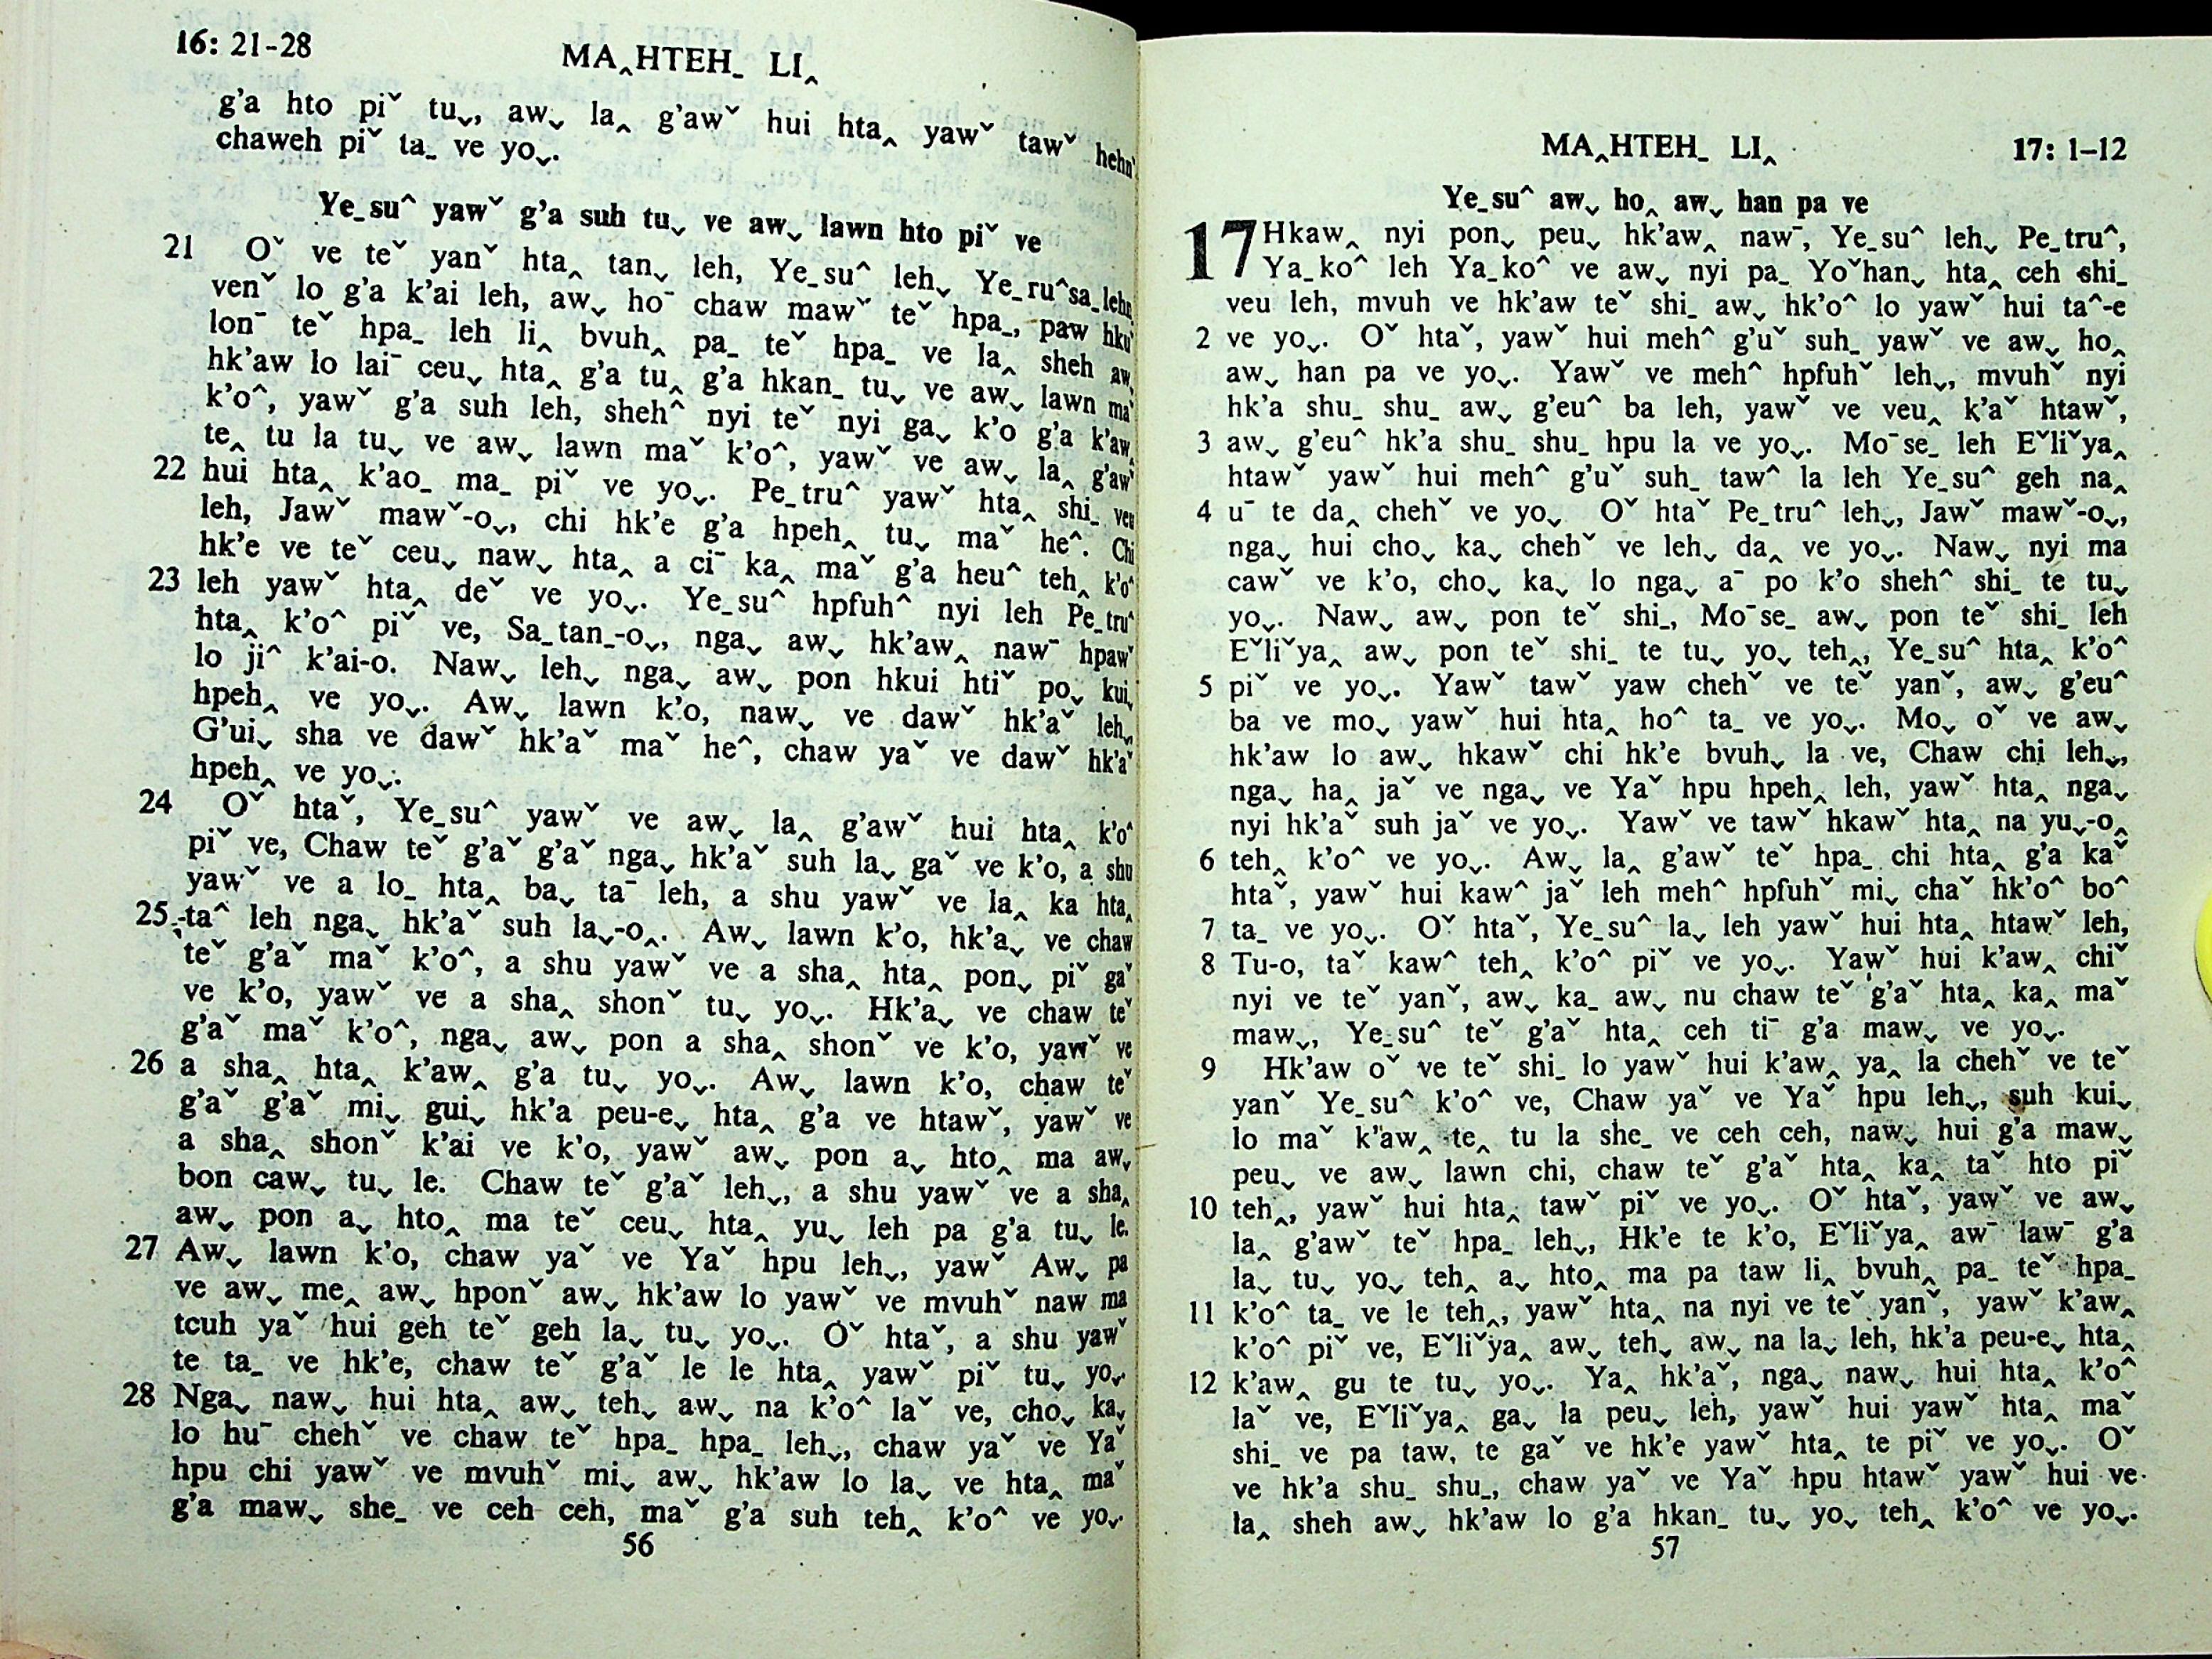 16: 21-28
MA‸HTEH_ LI‸
g'a hto piˇ tuˬ, awˬ la‸ g'awˇ hui hta‸ yawˇ tawˇ
chaweh piˇ ta_ ve yoˬ.
Ye_suˆ yawˇ g'a suh tuˬ ve awˬ lawn hto piˇ ve
21 Oˇ ve teˇ yanˇ hta‸ tanˬ leh, Ye_suˆ lehˬ Ye_ruˆsa_leh
venˇ lo g'a k'ai leh, awˬ hoˉ chaw mawˇ teˇ hpa_, paw hkuˇ
lonˉ teˇ hpa_ leh li‸ bvuh‸ pa_ teˇ hpa_ ve la‸ sheh awˬ
hk'aw lo laiˉ ceuˬ hta‸ g'a tu‸ g'a hkan_ tuˬ ve awˬ lawn maˇ
k'oˆ, yawˇ g'a suh leh, shehˆ nyi teˇ nyi gaˬ k'o g'a k'aw‸
te‸ tu la tuˬ ve awˬ lawn maˇ k'oˆ, yawˇ ve awˬ la‸ g'awˇ
22 hui hta‸ k'ao_ ma_ piˇ ve yoˬ. Pe_truˆ yawˇ hta‸ shi_ veu
leh, Jawˇ mawˇ-oˬ, chi hk'e g'a hpeh‸ tuˬ maˇ heˆ. Chi
hk'e ve teˇ ceuˬ nawˬ hta‸ a ciˉ ka‸ maˇ g'a heuˆ teh‸ k'oˆ
23 leh yawˇ hta‸ deˇ ve yoˬ. Ye_suˆ hpfuhˆ nyi leh Pe_truˆ
hta‸ k'oˆ piˇ ve, Sa_tan_-oˬ, ngaˬ awˬ hk'aw‸ nawˉ hpawˇ
lo jiˆ k'ai-o. Nawˬ lehˬ ngaˬ awˬ pon hkui htiˇ poˬ kuiˬ
hpeh‸ ve yoˬ. Awˬ lawn k'o, nawˬ ve dawˇ hk'aˇ lehˬ,
G'uiˬ sha ve dawˇ hk'aˇ maˇ heˆ, chaw yaˇ ve dawˇ hk'aˇ
hpeh‸ ve yoˬ.
24 Oˇ htaˇ, Ye_suˆ yawˇ ve awˬ la‸ g'awˇ hui hta‸ k'oˆ
piˇ ve, Chaw teˇ g'aˇ g'aˇ ngaˬ hk'aˇ suh laˬ gaˇ ve k'o, a shu
yawˇ ve a lo_ hta‸ baˬ taˉ leh, a shu yawˇ ve la‸ ka hta‸
25 taˆ leh ngaˬ hk'aˇ suh laˬ-o‸. Awˬ lawn k'o, hk'aˬ ve chaw
teˇ g'aˇ maˇ k'oˆ, a shu yawˇ ve a sha‸ hta‸ ponˬ piˇ gaˇ
ve k'o, yawˇ ve a sha‸ shonˇ tuˬ yoˬ. Hk'aˬ ve chaw teˇ
g'aˇ maˇ k'oˆ, ngaˬ awˬ pon a sha‸ shonˇ ve k'o, yawˇ ve
26 a sha‸ hta‸ k'aw‸ g'a tuˬ yoˬ. Awˬ lawn k'o, chaw teˇ
g'aˇ g'aˇ miˬ guiˬ hk'a peu-eˬ hta‸ g'a ve htawˇ, yawˇ ve
a sha‸ shonˇ k'ai ve k'o, yawˇ awˬ pon aˬ hto‸ ma awˬ
bon cawˬ tuˬ le. Chaw teˇ g'aˇ lehˬ, a shu yawˇ ve a sha‸
awˬ pon aˬ hto‸ ma teˇ ceuˬ hta‸ yuˬ leh pa g'a tuˬ le.
27 Awˬ lawn k'o, chaw yaˇ ve Yaˇ hpu lehˬ, yawˇ Awˬ pa
ve awˬ me‸ awˬ hponˇ awˬ hk'aw lo yawˇ ve mvuhˇ naw ma
tcuh yaˇ hui geh teˇ geh laˬ tuˬ yoˬ. Oˇ htaˇ, a shu yawˇ
te ta_ ve hk'e, chaw teˇ g'aˇ le le hta‸ yawˇ piˇ tuˬ yoˬ.
28 Ngaˬ nawˬ hui hta‸ awˬ tehˬ awˬ na k'oˆ laˇ ve, choˬ kaˬ
lo huˉ chehˇ ve chaw teˇ hpa_ hpa_ lehˬ, chaw yaˇ ve Yaˇ
hpu chi yawˇ ve mvuhˇ miˬ awˬ hk'aw lo laˬ ve hta‸ maˇ
g'a mawˬ she_ ve ceh ceh, maˇ g'a suh teh‸ k'oˆ ve yoˬ.
56
MA‸HTEH_ LI‸
17: 1-12
Ye_suˆ awˬ ho‸ awˬ han pa ve
17 Hkaw‸ nyi ponˬ peuˬ hk'aw‸ nawˉ, Ye_suˆ lehˬ Pe_truˆ,
Ya_koˆ leh Ya_koˆ ve awˬ nyi pa_ Yoˇhanˬ hta‸ ceh shi_
veu leh, mvuh ve hk'aw teˇ shi_ awˬ hk'oˆ lo yawˇ hui taˆ-e
2 ve yoˬ. Oˇ htaˇ, yawˇ hui mehˆ g'uˇ suh_ yawˇ ve awˬ ho‸
awˬ han pa ve yoˬ. Yawˇ ve mehˆ hpfuhˇ lehˬ, mvuhˇ nyi
hk'a shu_ shu_ awˬ g'euˆ ba leh, yawˇ ve veu‸ k'aˇ htawˇ,
3 awˬ g'euˆ hk'a shu_ shu_ hpu la ve yoˬ. Moˉse_ leh Eˇliˇya‸
htawˇ yawˇ hui mehˆ g'uˇ suh_ tawˆ la leh Ye_suˆ geh na‸
4 uˉ te da‸ chehˇ ve yoˬ Oˇ htaˇ Pe_truˆ lehˬ, Jawˇ mawˇ-oˬ,
ngaˬ hui choˬ kaˬ chehˇ ve lehˬ da‸ ve yoˬ. Nawˬ nyi ma
cawˇ ve k'o, choˬ kaˬ lo ngaˬ aˉ po k'o shehˆ shi_ te tuˬ
yoˬ. Nawˬ awˬ pon teˇ shi_, Moˉse_ awˬ pon teˇ shi_ leh
Eˇliˇya‸ awˬ pon teˇ shi_ te tuˬ yoˬ teh‸, Ye_suˆ hta‸ k'oˆ
5 piˇ ve yoˬ. Yawˇ tawˇ yaw chehˇ ve teˇ yanˇ, awˬ g'euˆ
ba ve moˬ yawˇ hui hta‸ hoˆ ta_ ve yoˬ. Moˬ oˇ ve awˬ
hk'aw lo awˬ hkawˇ chi hk'e bvuh‸ la ve, Chaw chi lehˬ,
ngaˬ ha‸ jaˇ ve ngaˬ ve Yaˇ hpu hpeh‸ leh, yawˇ hta‸ ngaˬ
nyi hk'aˇ suh jaˇ ve yoˬ. Yawˇ ve tawˇ hkawˇ hta‸ na yuˬ-o‸
6 teh‸ k'oˆ ve yoˬ. Awˬ la‸ g'awˇ teˇ hpa_ chi hta‸ g'a kaˇ
htaˇ, yawˇ hui kawˆ jaˇ leh mehˆ hpfuhˇ miˬ chaˇ hk'oˆ boˆ
7 ta_ ve yoˬ. Oˇ htaˇ, Ye_suˆ laˬ leh yawˇ hui hta‸ htawˇ leh,
8 Tu-o, taˇ kawˆ teh‸ k'oˆ piˇ ve yoˬ. Yawˇ hui k'aw‸ chiˇ
nyi ve teˇ yanˇ, awˬ ka_ awˬ nu chaw teˇ g'aˇ hta‸ ka‸ maˇ
mawˬ, Ye_suˆ teˇ g'aˇ hta‸ ceh tiˉ g'a mawˬ ve yoˬ.
9 Hk'aw oˇ ve teˇ shi_ lo yawˇ hui k'aw‸ ya‸ la chehˇ ve teˇ
yanˇ Ye_suˆ k'oˆ ve, Chaw yaˇ ve Yaˇ hpu lehˬ, suh kuiˬ
lo maˇ k'aw‸ te‸ tu la she_ ve ceh ceh, nawˬ hui g'a mawˬ
peuˬ ve awˬ lawn chi, chaw teˇ g'aˇ hta‸ ka‸ taˇ hto piˇ
10 teh‸, yawˇ hui hta‸ tawˇ piˇ ve yoˬ. Oˇ htaˇ, yawˇ ve awˬ
la‸ g'awˇ teˇ hpa_ lehˬ, Hk'e te k'o, Eˇliˇya‸ awˉ lawˉ g'a
laˬ tuˬ yoˬ teh‸ aˬ hto‸ ma pa taw li‸ bvuh‸ pa_ teˇ hpa_
11 k'oˆ ta_ ve le teh‸, yawˇ hta‸ na nyi ve teˇ yanˇ, yawˇ k'aw‸
k'oˆ piˇ ve, Eˇliˇya‸ awˬ tehˬ awˬ na laˬ leh, hk'a peu-eˬ hta‸
12 k'aw‸ gu te tuˬ yoˬ. Ya‸ hk'aˇ, ngaˬ nawˬ hui hta‸ k'oˆ
laˇ ve, Eˇliˇya‸ gaˬ la peuˬ leh, yawˇ hui yawˇ hta‸ maˇ
shi_ ve pa taw, te gaˇ ve hk'e yawˇ hta‸ te piˇ ve yoˬ. Oˇ
ve hk'a shu_ shu_, chaw yaˇ ve Yaˇ hpu htawˇ yawˇ hui ve
la‸ sheh awˬ hk'aw lo g'a hkan_ tuˬ yoˬ teh‸ k'oˆ ve yoˬ.
57